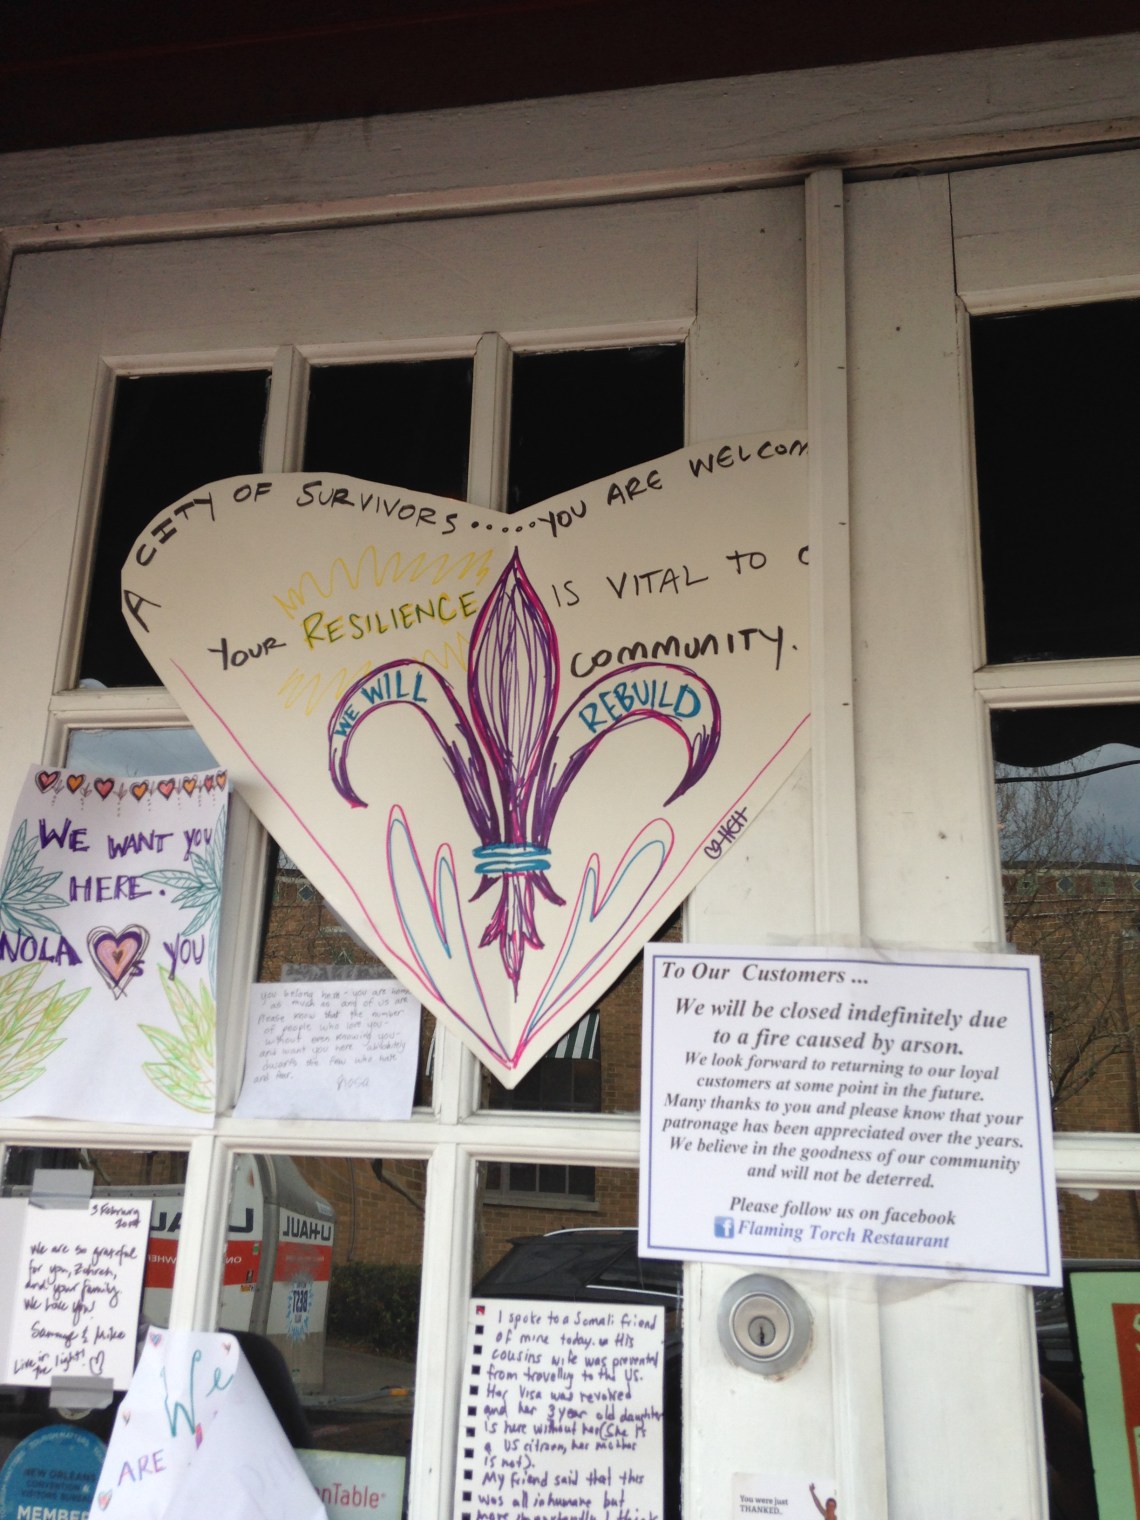 A CITY OF SURVIVORS ..... YOU ARE WELCOM
YOUR RESILIENCE IS VITAL TO
COMMUNITY.
WE WILL REBUILD
HCH
WE WANT YOU
HERE.
NOLA S YOU
you belong here - you are home
as much as any of us are
Please know that the number
of people who love you -
without even knowing you -
and want you here
the few who hate
and fear.
To Our Customers ...
We will be closed indefinitely due
to a fire caused by arson.
We look forward to returning to our loyal
customers at some point in the future.
Many thanks to you and please know that your
patronage has been appreciated over the years.
We believe in the goodness of our community
and will not be deterred.
Please follow us on facebook
f Flaming Torch Restaurant
3 February
We are so grateful
for you, Zohreh,
and your family.
We love you!
Sammye & Mike
Live in
the light!
We
ARE
I spoke to a Somali friend
of mine today. His
cousins wife was prevented
from travelling to the US.
Her Visa was revoked
and her 3 year old daughter
is here without her (She is
a US citizen, her mother
is not).
My friend said that this
was all inhumane but
more importantly I think
U-HAUL
NEW ORLEANS
CONVENTION &
VISITORS BUREAU
MEMBER
nTable
You were just
THANKED.